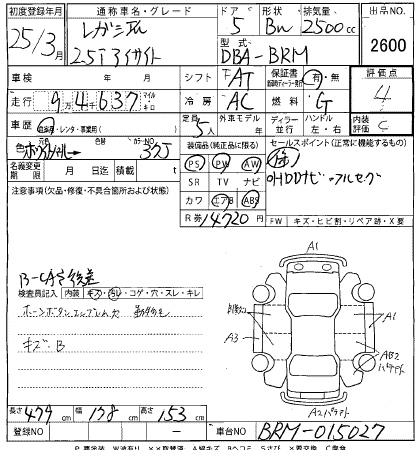 初度登録年月 通称車名・グレード ドア 形状 排気量 出品NO.
25/3月 レガシィ 5 Bw 2500cc
2.5i アイサイト 型式 DBA-BRM 2600
車検 年 月 シフト FAT 保証書 有・無 評価点
走行 9万4637 マイル キロ 冷房 AC 燃料 G 4
車歴 自家用・レンタ・事業用( ) 定員 5人 外車モデル 年 ディーラー 並行 ハンドル 左・右 内装評価 C
色 色替 カラーNO. 37J 装備品(純正品に限る) セールスポイント(正常に機能するもの)
PS PW AW
名義変更期限 月 日迄 積載 t SR TV ナビ HDDナビ フルセグ
注意事項(欠品・修復・不具合箇所および状態) カワ エアB ABS
R券 14720円 FW キズ・ヒビ割・リペア跡・X要
検査員記入 内装 キズ・汚レ・コゲ・穴・スレ・キレ
ホーンボタンエンブレム
キズB
A1
A1
A3
AB2
A2
長さ 479cm 幅 178cm 高さ 153cm
登録NO 車台NO BRM-015027